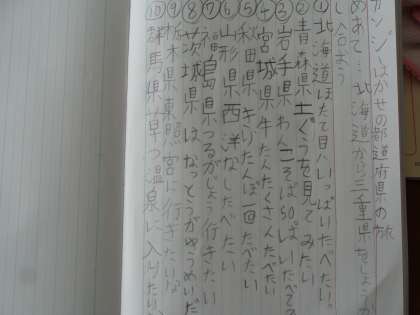 カンジーはかせの都道府県の旅
めあて…北海道から三重県をしょうか
し合おう
①北海道ほたて貝いっぱいたべたい。
②青森県土ぐうを見てみたい
③岩手県わんこそば50ぱいたべてみ
④宮城県牛たんたくさんたべたい
⑤秋田県きりたんぽ一回たべたい
⑥山形県西洋なしたべたい
⑦福島県つるがじょう行きたい
⑧茨城県はなっとうがゆうめいだ
⑨栃木県東照宮に行きたいな
⑩群馬県草つ温泉に入りたい